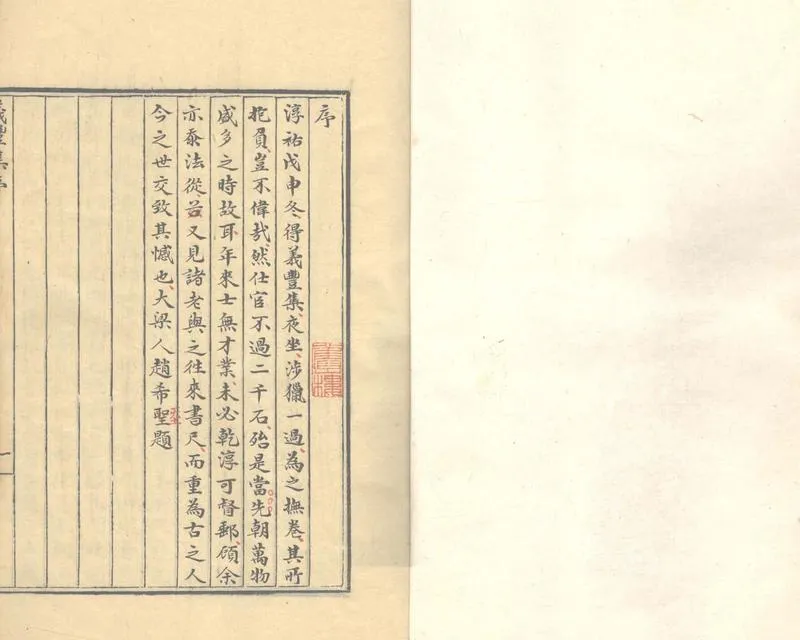 序
淳祐戊申冬得義豐集夜坐涉獵一過為之撫卷其所
抱員豈不偉哉然仕官不過二千石殆是當先朝萬物
盛多之時故耳年來士無才業未必乾淳可督郵頋余
亦忝法從若又見諸老與之往來書尺而重為古之人
今之世交致其憾也大梁人趙希聖題
義豐集序
一